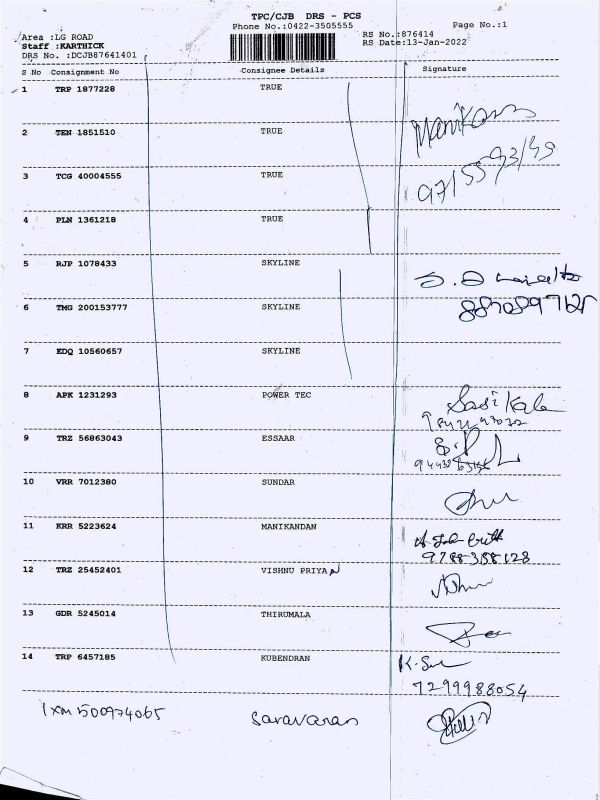 TPC/CJB DRS - PCS
Phone No.:0422-3505555
Page No.:1
Area :LG ROAD
RS No.:876414
Staff :KARTHICK
RS Date:13-Jan-2022
DRS No. :DCJB87641401
S No Consignment No Consignee Details Signature
1 TRP 1877228 TRUE
2 TEN 1851510 TRUE
3 TCG 40004555 TRUE
4 PLN 1361218 TRUE
5 RJP 1078433 SKYLINE
6 TMG 200153777 SKYLINE
7 EDQ 10560657 SKYLINE
8 APK 1231293 POWER TEC
Sasi Kala
9 TRZ 56863043 ESSAAR
10 VRR 7012380 SUNDAR
11 KRR 5223624 MANIKANDAN
9788358123
12 TRZ 25452401 VISHNU PRIYA
13 GDR 5245014 THIRUMALA
14 TRP 6457185 KUBENDRAN
7299988054
IXM 500974065 Saravanan